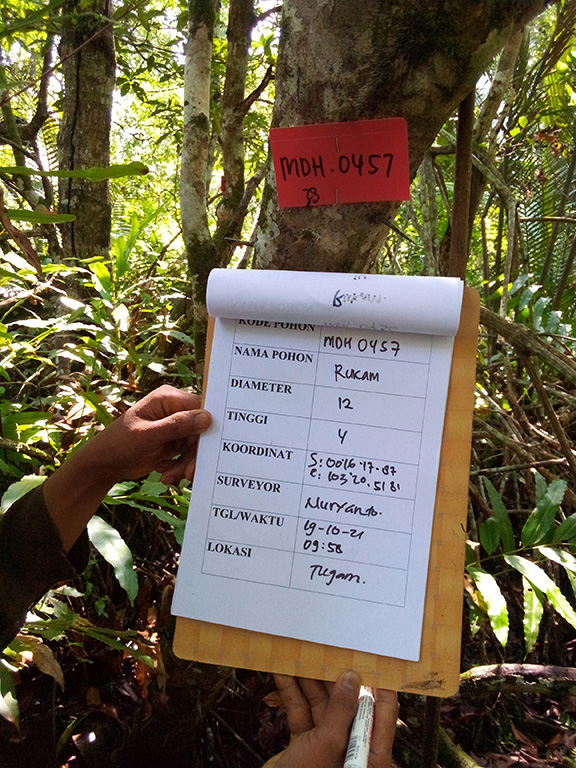 MDH.0457
KODE POHON MDH 0457
NAMA POHON Rukam
DIAMETER 12
TINGGI 4
KOORDINAT S: 00°16'17.87
E: 103°20.51 81
SURVEYOR Nuryanto.
TGL/WAKTU 19-10-21
09:58
LOKASI